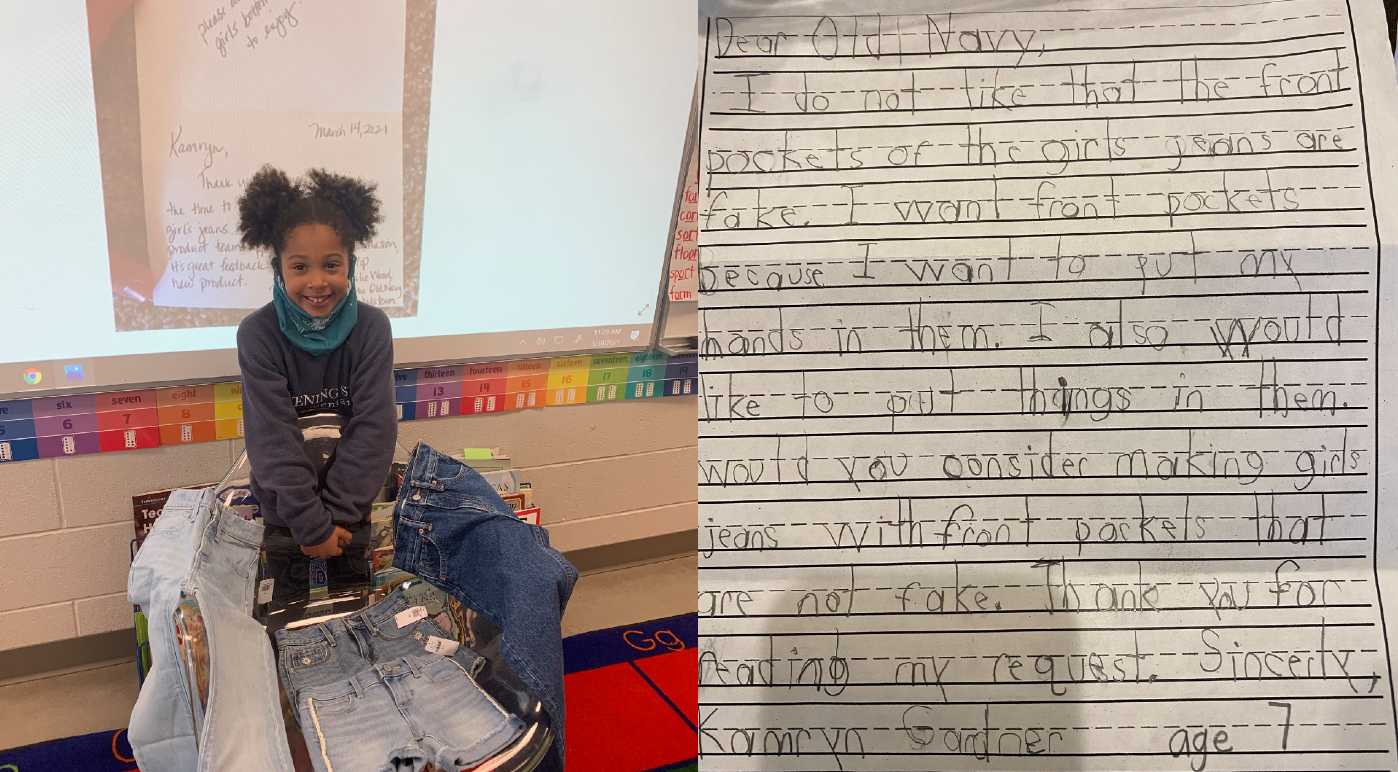 please
girls bottom
to enjoy.
March 14, 2021
Kamryn,
Thank
the time to
girl's jeans.
product team
It's great feedback
new product.
Old Navy
11:29 AM
six seven eight
6 7 8
thirteen fourteen fifteen sixteen seventeen eighteen
13 14 15 16 17 18 19
Gg
Dear Old Navy,
I do not like that the front
pockets of the girls jeans are
fake. I want front pockets
because I want to put my
hands in them. I also would
like to put things in them.
would you consider making girls
jeans with front pockets that
are not fake. Thank you for
reading my request. Sincerly,
Kamryn Gardner age 7